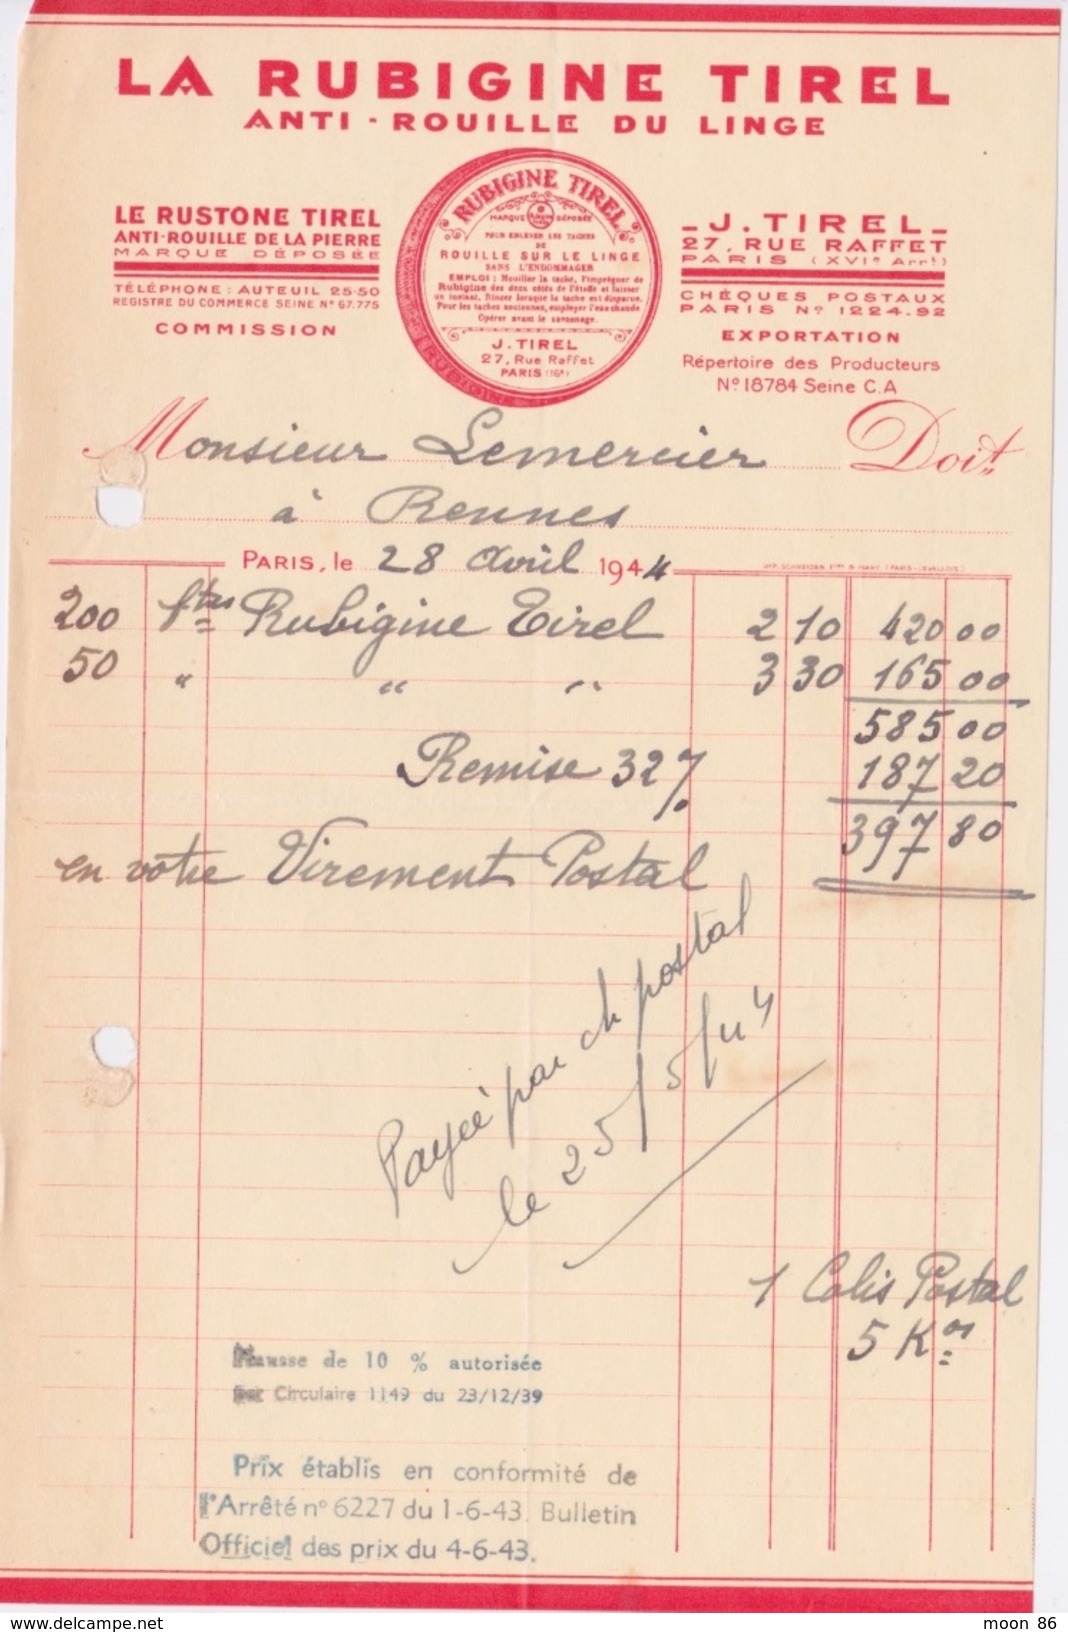 LA RUBIGINE TIREL
ANTI-ROUILLE DU LINGE
LE RUSTONE TIREL
ANTI-ROUILLE DE LA PIERRE
MARQUE DÉPOSÉE
TÉLÉPHONE : AUTEUIL 25-50
REGISTRE DU COMMERCE SEINE N° 67.775
COMMISSION
RUBIGINE TIREL
MARQUE DÉPOSÉE
POUR ENLEVER LES TACHES
DE
ROUILLE SUR LE LINGE
SANS L'ENDOMMAGER
EMPLOI : Mouiller la tache, l'imprégner de
Rubigine des deux côtés de l'étoffe et laisser
un instant. Rincer lorsque la tache est disparue.
Pour les taches anciennes, employer l'eau chaude
Opérer avant le savonnage.
J. TIREL
27, Rue Raffet
PARIS (16e)
J. TIREL
27, RUE RAFFET
PARIS (XVIe Arrt)
CHÈQUES POSTAUX
PARIS N° 1224-92
EXPORTATION
Répertoire des Producteurs
N° 18784 Seine C.A
Monsieur Lemercier Doit
à Rennes
PARIS, le 28 Avril 1944
200 btes Rubigine Tirel 2 10 420 00
50 " " " 3 30 165 00
585 00
Remise 32% 187 20
397 80
en votre Virement Postal
Payée par ch postal
le 25/5/44
1 Colis Postal
5 Kos
Hausse de 10 % autorisée
par Circulaire 1149 du 23/12/39
Prix établis en conformité de
l'Arrêté n° 6227 du 1-6-43. Bulletin
Officiel des prix du 4-6-43.
www.delcampe.net
moon 86